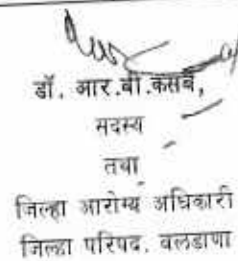 डॉ. आर.बी.कसबे,
सदस्य
तथा
जिल्हा आरोग्य अधिकारी
जिल्हा परिषद. बुलडाणा